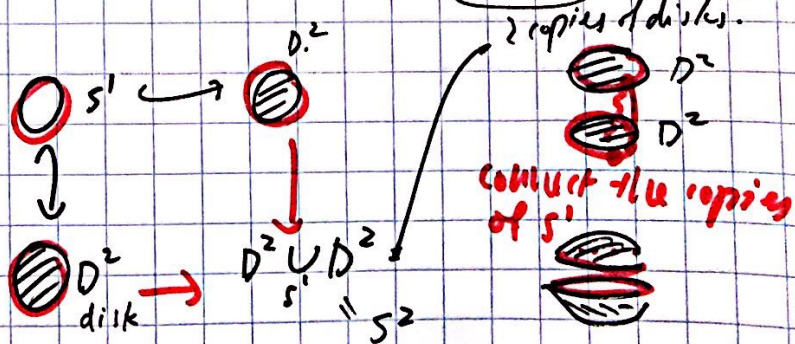 2 copies of disks.
D²
S¹
D²
D²
S¹
D²
connect the copies
of S¹
D²
disk
D² ∪ D²
S¹
= S²